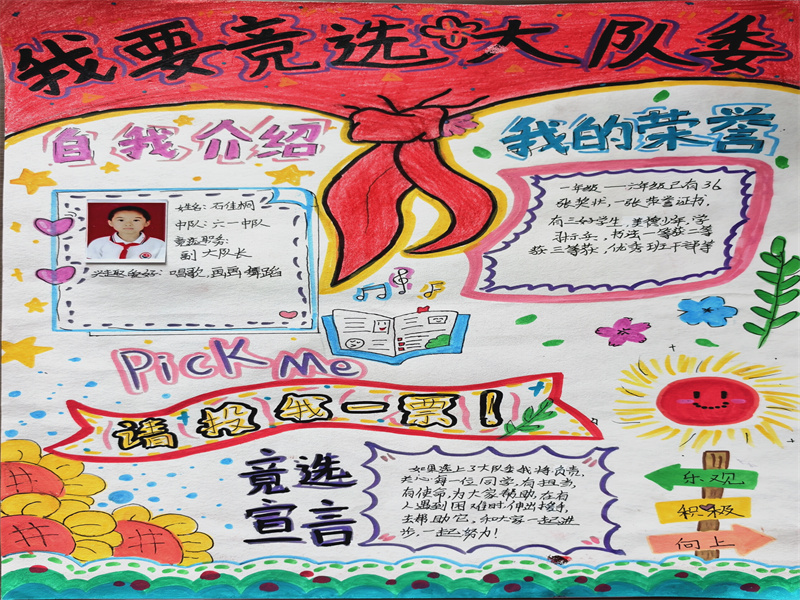 我要竞选大队委
自我介绍
姓名：石佳桐
中队：六一中队
竞选职务：
副 大队长
兴趣爱好：唱歌，画画，舞蹈
我的荣誉
一年级——六年级已有36
张奖状，一张荣誉证书。
有三好学生，美德少年，学
习标兵，书法一等获二等
获三等获，优秀班干部等
Pick Me
请投我一票！
竞选
宣言
如果选上了大队委我将负责，
关心每一位同学，有担当，
有使命，为大家帮助，在有
人遇到困难时伸出援手，
去帮助它，和大家一起进
步，一起努力！
乐观
积极
向上